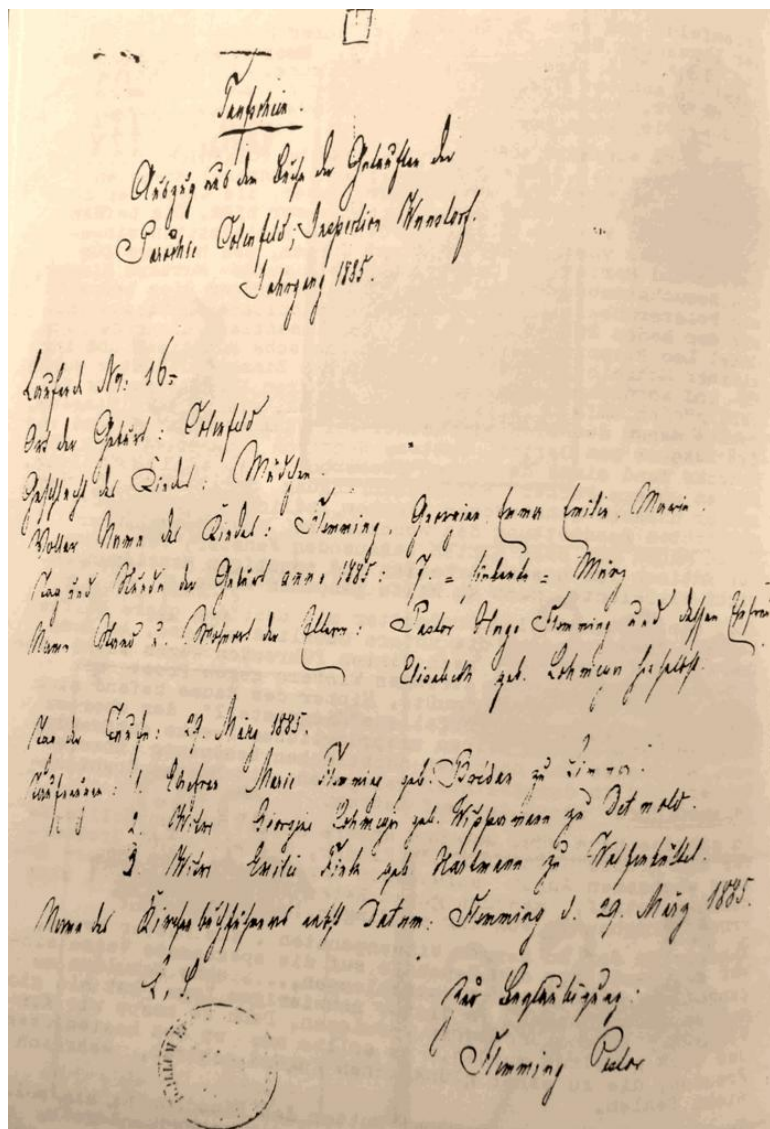 Taufschein.
Auszug aus dem Buche der Getauften der
Parochie Colenfeld, Inspection Wunstorf.
Jahrgang 1885.
Laufende Nr: 16
Ort der Geburt: Colenfeld
Geschlecht des Kindes: Mädchen.
Voller Name des Kindes: Flemming, Georgine Emma Emilie Marie.
Tag und Stunde der Geburt anno 1885: 7. = siebente = März
Name Stand u. Wohnort der Eltern: Pastor Hugo Flemming und dessen Ehefrau
Elisabeth geb. Lohmeyer hieselbst.
Tag der Taufe: 29. März 1885.
1. Ehefrau Marie Flemming geb. zu
2. Witwe Georgine Lohmeyer geb. Wippermann zu Detmold.
3. Witwe Emilie Fink geb Hartmann zu Wolfenbüttel.
Name des Kirchenbuchführers nebst Datum: Flemming d. 29. März 1885.
L. S.
Zur Beglaubigung:
Flemming Pastor